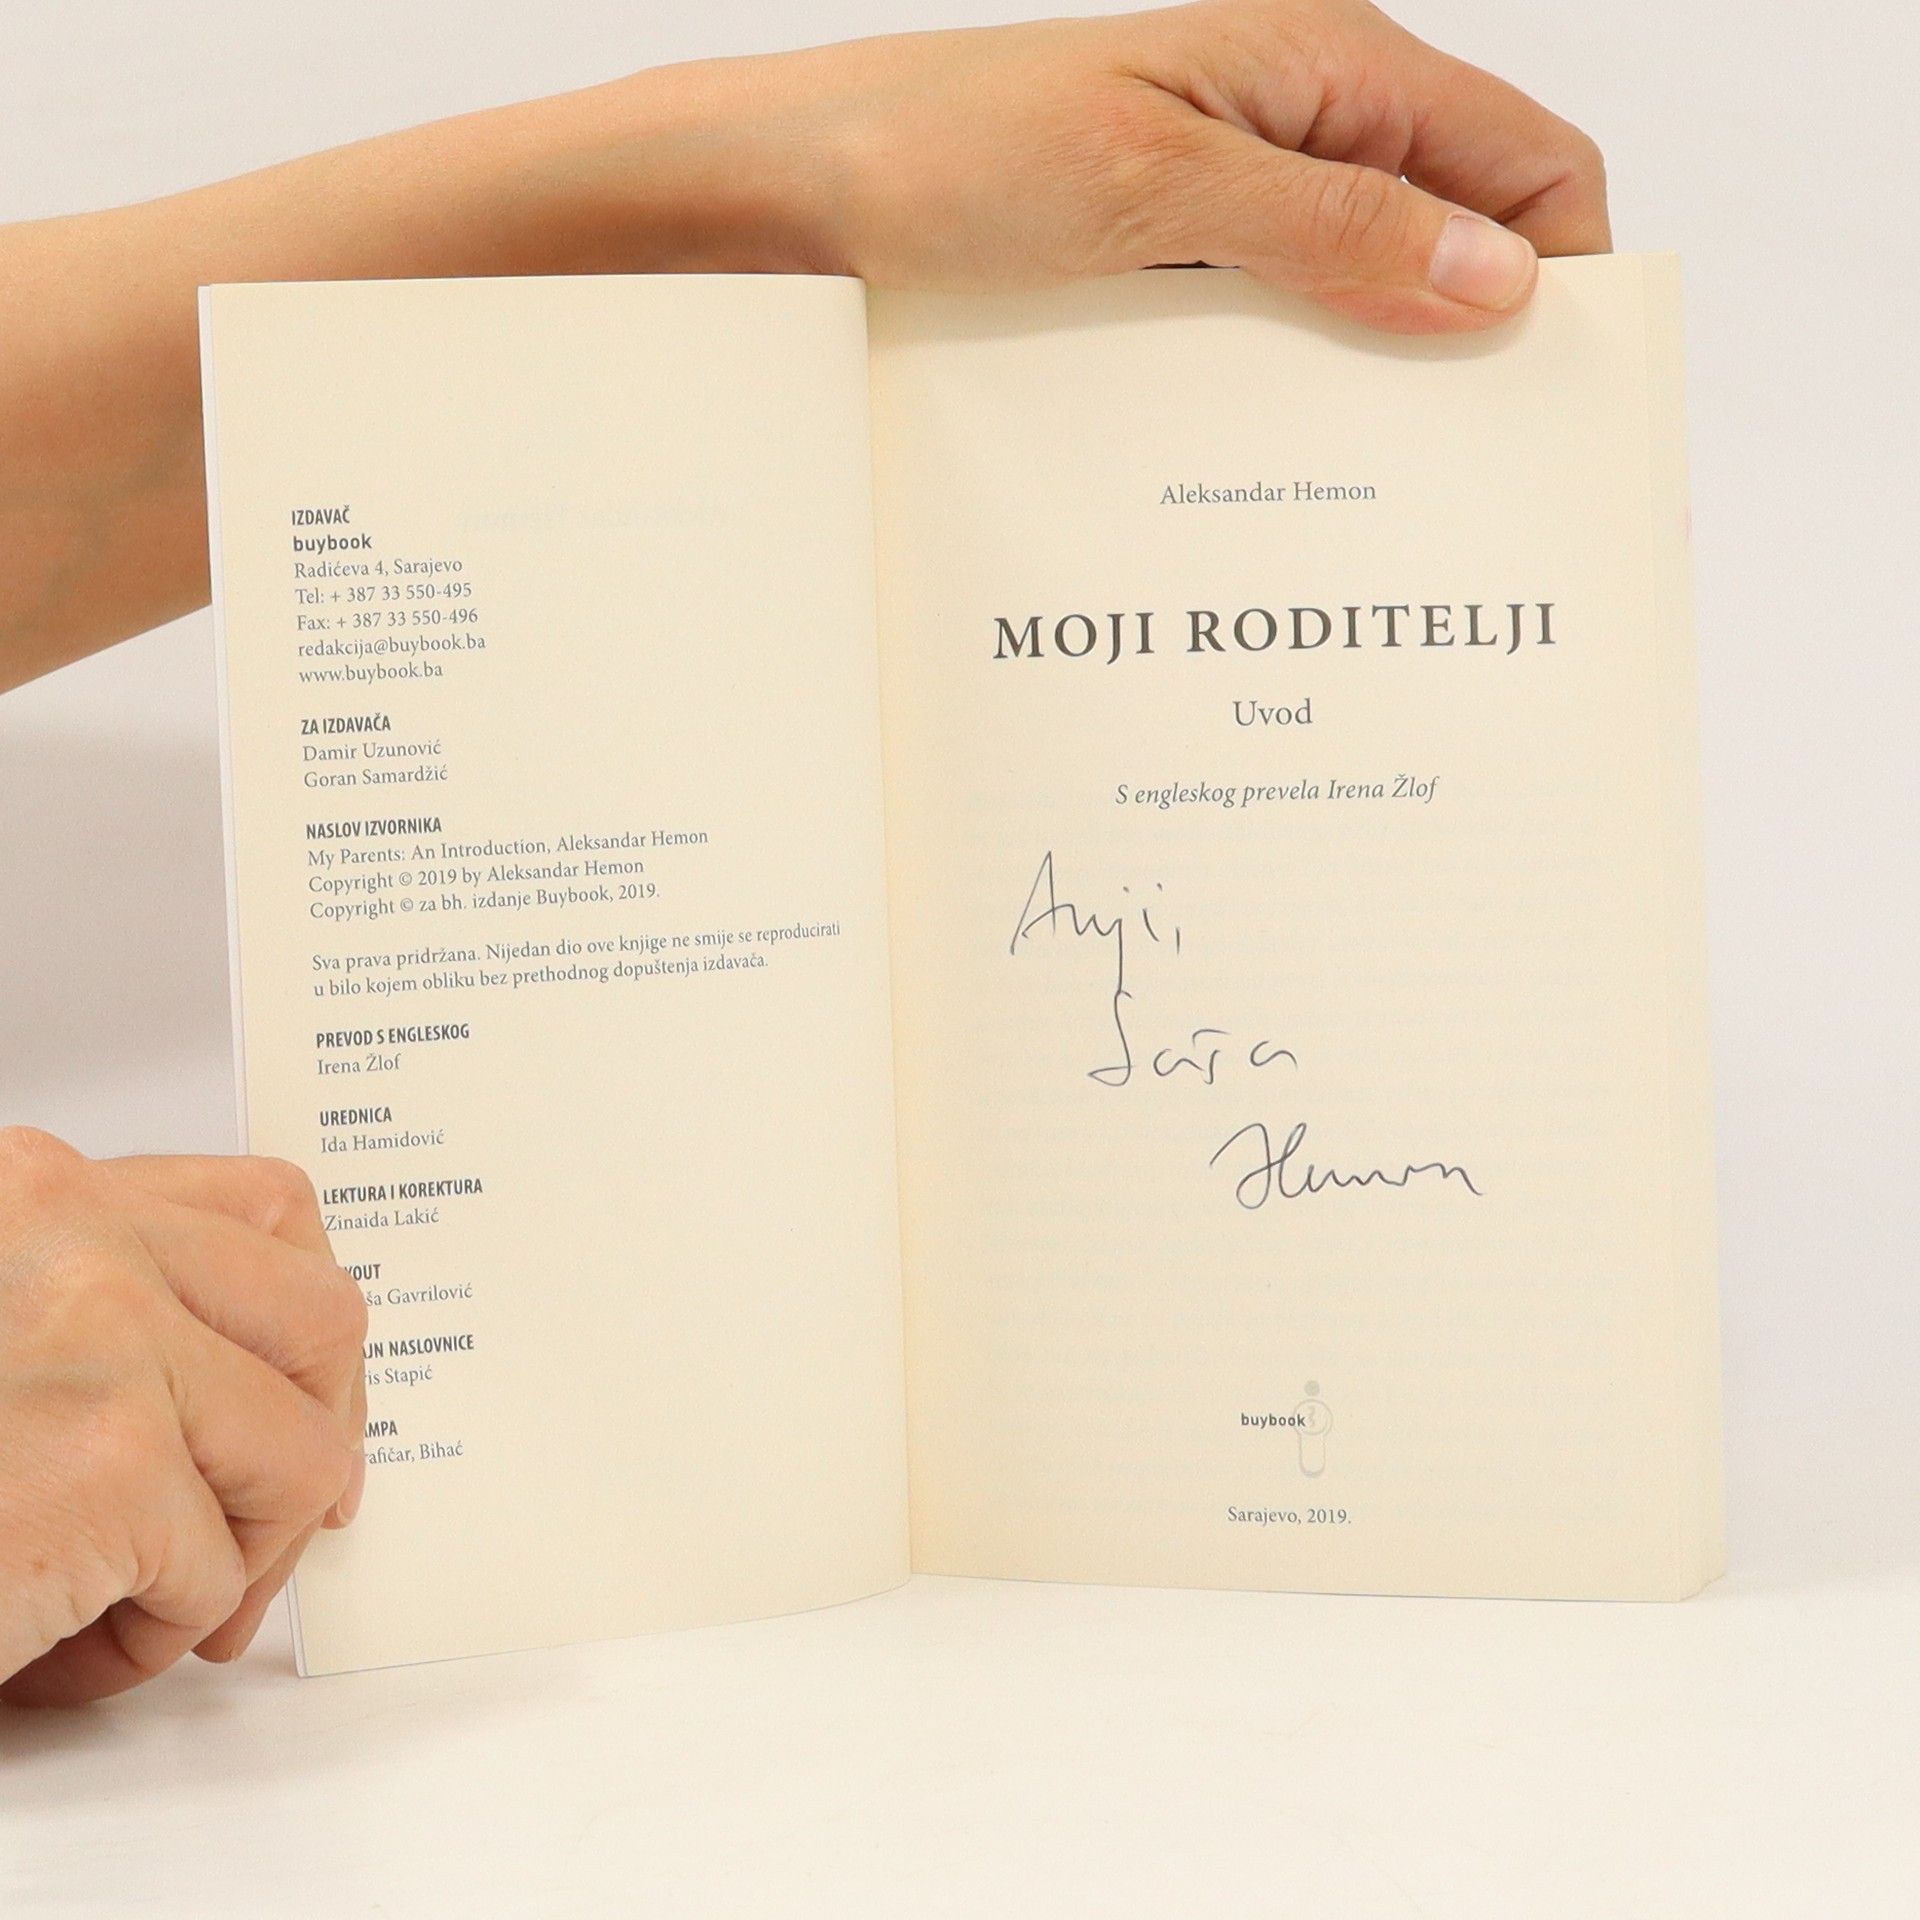 IZDAVAČ
buybook
Radićeva 4, Sarajevo
Tel: + 387 33 550-495
Fax: + 387 33 550-496
redakcija@buybook.ba
www.buybook.ba
ZA IZDAVAČA
Damir Uzunović
Goran Samardžić
NASLOV IZVORNIKA
My Parents: An Introduction, Aleksandar Hemon
Copyright © 2019 by Aleksandar Hemon
Copyright © za bh. izdanje Buybook, 2019.
Sva prava pridržana. Nijedan dio ove knjige ne smije se reproducirati
u bilo kojem obliku bez prethodnog dopuštenja izdavača.
PREVOD S ENGLESKOG
Irena Žlof
UREDNICA
Ida Hamidović
LEKTURA I KOREKTURA
Zinaida Lakić
Gavrilović
NASLOVNICE
Stapić
Bihać
Aleksandar Hemon
MOJI RODITELJI
Uvod
S engleskog prevela Irena Žlof
Anji,
Saša
Hemon
buybook
Sarajevo, 2019.